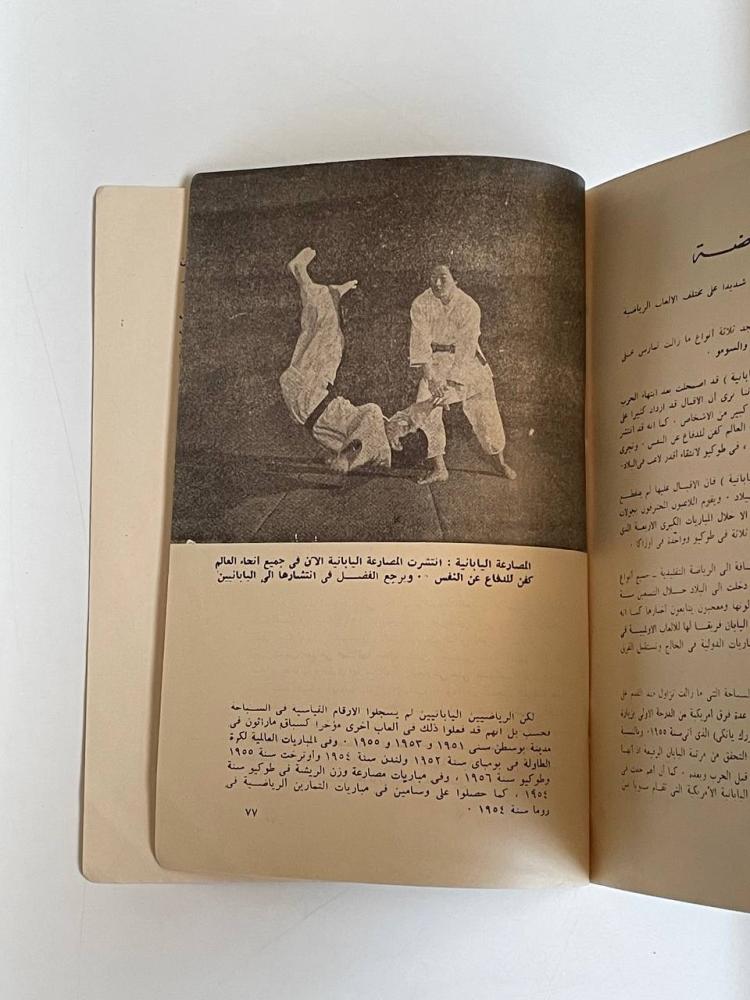 المصارعة اليابانية : انتشرت المصارعة اليابانية الآن فى جميع أنحاء العالم
كفن للدفاع عن النفس ٠٠ ويرجع الفضل فى انتشارها الى اليابانيين
لكن الرياضيين اليابانيين لم يسجلوا الارقام القياسيه فى السباحة
فحسب بل انهم قد فعلوا ذلك فى ألعاب أخرى مؤخرا كسباق ماراثون فى
مدينة بوسطن سنى ١٩٥١ و ١٩٥٣ و ١٩٥٥ ٠ وفى المباريات العالمية لكرة
الطاولة فى بومباى سنة ١٩٥٢ ولندن سنة ١٩٥٤ وأوترخت سنة ١٩٥٥
وطوكيو سنة ١٩٥٦ ، وفى مباريات مصارعة وزن الريشة فى طوكيو سنة
١٩٥٤ ، كما حصلوا على وسامين فى مباريات التمارين الرياضية فى
روما سنة ١٩٥٤ ٠
٧٧
شديدا على مختلف الالعاب الرياضية
ثلاثة أنواع ما زالت تمارس
والسومو ٠
قد اضمحلت بعد انتهاء الحرب
نرى أن الاقبال قد ازداد كثيرا على
كبير من الاشخاص ٠ كما انه قد انتشر
العالم كفن للدفاع عن النفس ٠
فى طوكيو لانتقاء أقدر لاعب فى البلاد
فان الاقبال عليها لم ينقطع
ويقوم اللاعبون المحترفون بجولات
الا خلال المباريات الكبرى الاربعة التى
ثلاثة فى طوكيو وواحدة فى اوزاكا ٠
الى الرياضة التقليدية ــ جميع أنواع
دخلت الى البلاد خلال التسعين سنة
ومعجبون يتابعون أخبارها كما انه
اليابان فريقا لها للالعاب الاولمبية فى
الدولية فى الخارج وتستقبل الفرق
التى ما زالت تزاول منذ القدم
عدة فرق أمريكية من الدرجة الاولى بزيارة
يانكى) الذى أتى سنة ١٩٥٥ ٠
التحقق من مرتبة اليابان الرفيعة
قبل الحرب وبعده ٠ كما أن
اليابانية الأمريكية التى تقام سنويا بين